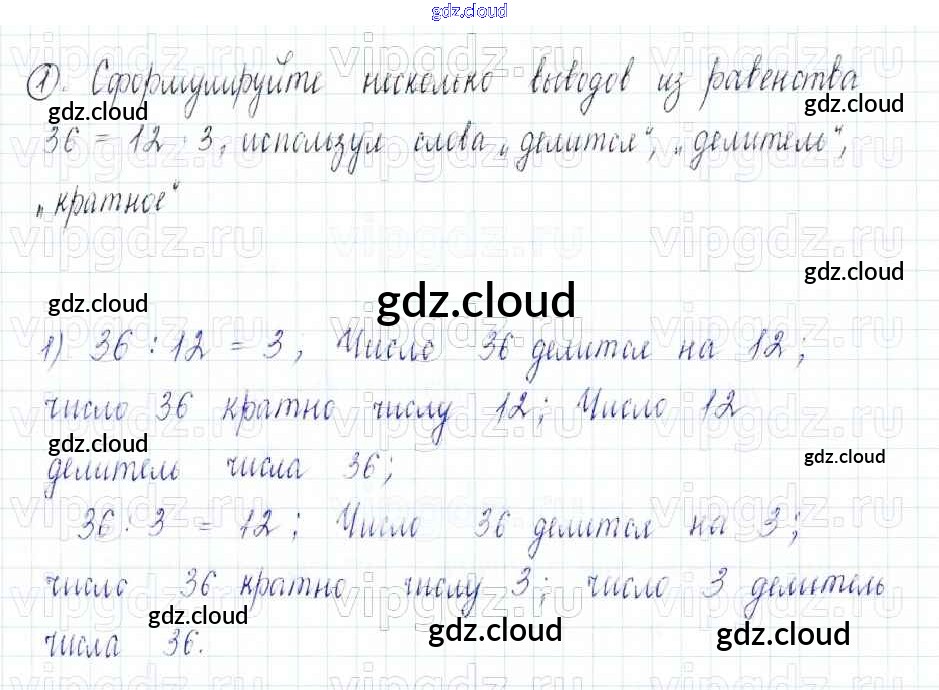 gdz.cloud
①. Сформулируйте несколько выводов из равенства
gdz.cloud gdz.cloud
36 = 12 · 3, используя слова „делится“, „делитель“,
„кратное“
vipgdz.ru vipgdz.ru vipgdz.ru
gdz.cloud
gdz.cloud gdz.cloud
1) 36 : 12 = 3, Число 36 делится на 12;
число 36 кратно числу 12; Число 12
gdz.cloud gdz.cloud
делитель числа 36;
36 : 3 = 12; Число 36 делится на 3;
число 36 кратно числу 3; число 3 делитель
gdz.cloud gdz.cloud gdz.cloud
числа 36.